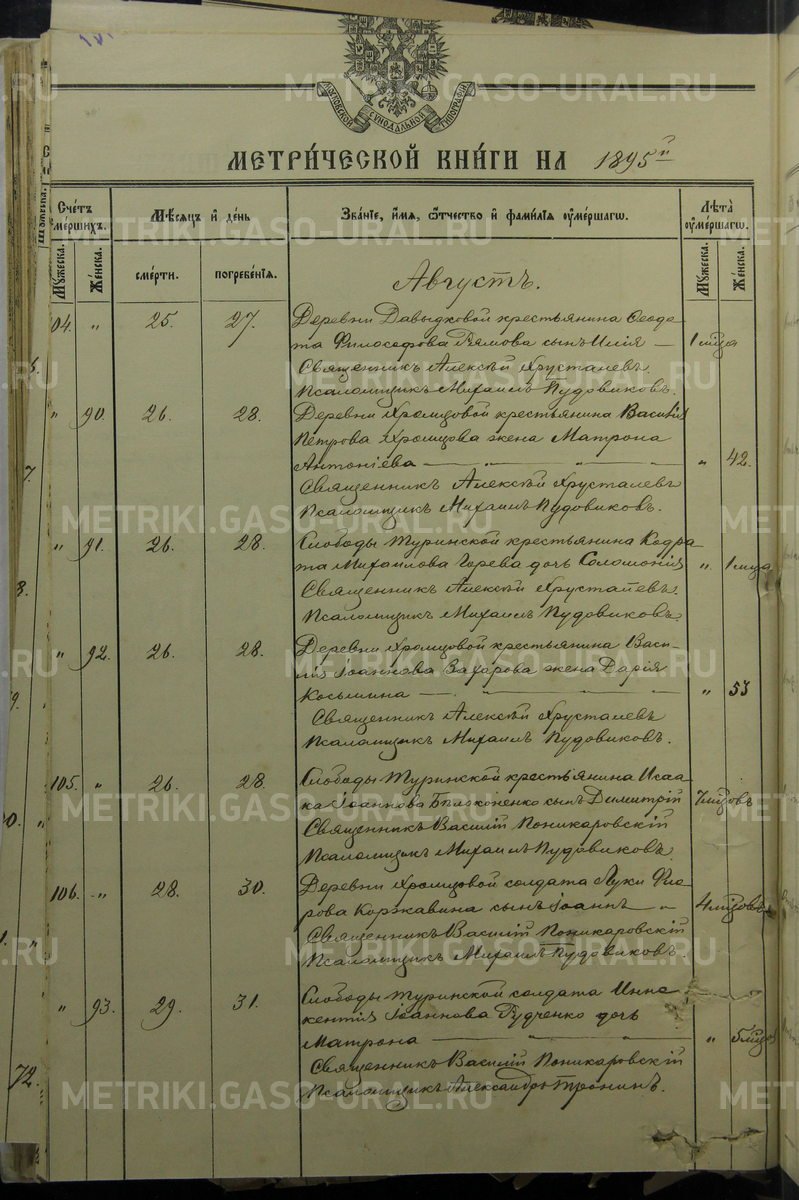 МОСКОВСКОЙ СѴНОДАЛЬНОЙ ТИПОГРАФІИ
МЕТРИ́ЧЕСКОЙ КНИ́ГИ НА 1895й
Сче́тъ
ме́ршихъ.
Мѣсяцъ и де́нь
Зва́ніе, и́мя, ѻ́тчество и фами́лія оуме́ршагѡ.
Лѣта̀
оуме́ршагѡ.
Мꙋжеска.
Же́нска.
сме́рти.
погребе́нія.
Мꙋжеска.
Же́нска.
Августъ.
04. " 25. 27. Деревни Давыдковой крестьянина Ѳеодо-
та Философова Рямова сынъ Илія — 1 мѣца
Священникъ Алексѣй Хрусталевъ
Псаломщикъ Михаилъ Пудовиковъ.
" 90. 26. 28. Деревни Храмцовой крестьянина Василія
Петрова Храмцова жена Матрона
Антоніева — " — " — " 42.
Священникъ Алексѣй Хрусталевъ
Псаломщикъ Михаилъ Пудовиковъ.
" 91. 26. 28. Слободы Туринской крестьянина Кодра-
та Михаилова дочь Соломонія " 1 мѣца
Священникъ Алексѣй Хрусталевъ.
Псаломщикъ Михаилъ Пудовиковъ.
" 92. 26. 28. Деревни Храмцовой крестьянина Васи-
лія Іоаннова Захарова жена Дарія
Косьмина — " — " — " 53
Священникъ Алексѣй Хрусталевъ
Псаломщикъ Михаилъ Пудовиковъ.
105. " 26. 28. Слободы Туринской крестьянина Исаа-
ка Іоаннова сынъ Димитрій 7 мѣцовъ
Священникъ Василій Поникаровскій
Псаломщикъ Михаилъ Пудовиковъ.
106. " 28. 30. Деревни Храмцовой солдата Луки
Коржавина сынъ Іоаннъ " 4 мѣцовъ
Священникъ Василій Поникаровскій
Псаломщикъ Михаилъ Пудовиковъ.
" 93. 29. 31. Слободы Туринской солдата Инно-
кентія Іоаннова Рудченко дочь
Матрона — " — " 5 мѣцов
Священникъ Василій Поникаровскій
Псаломщикъ Александръ Тронинъ.
METRIKI.GASO-URAL.RU